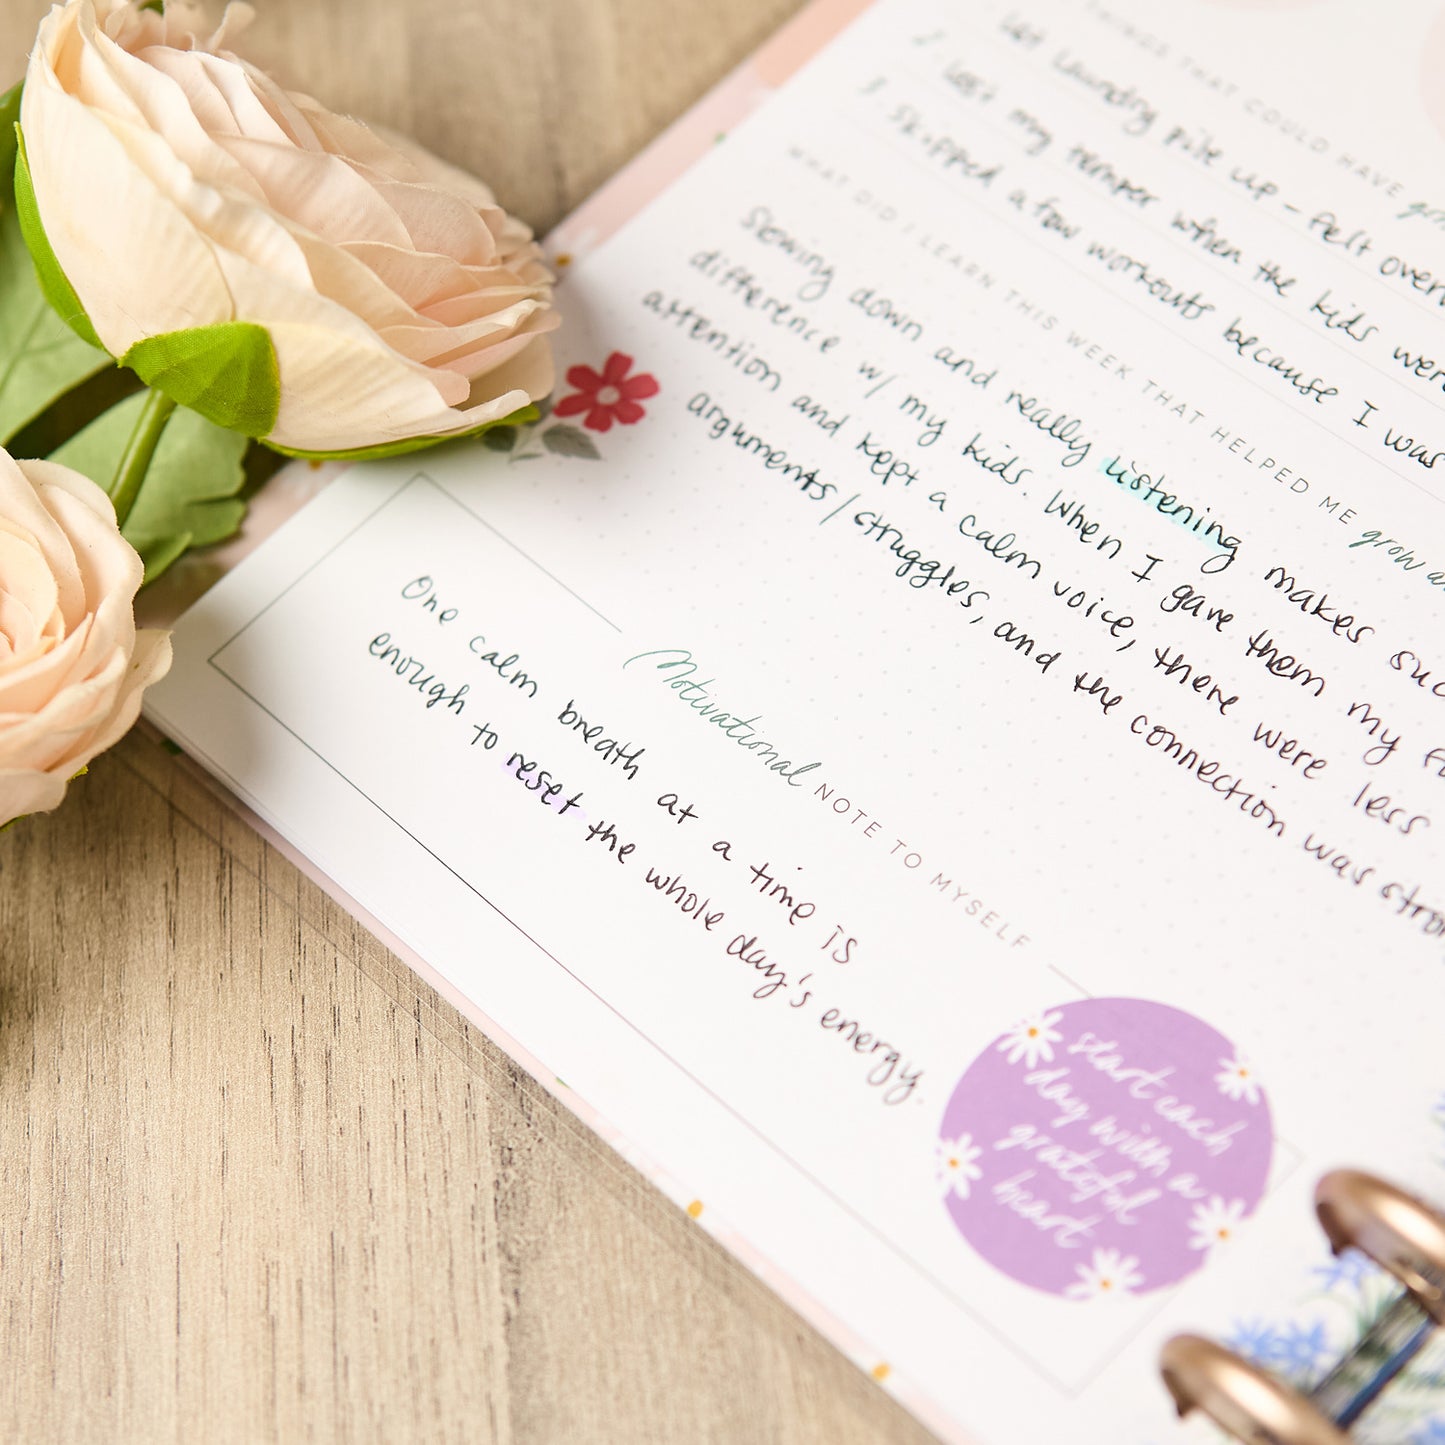 THINGS THAT COULD HAVE
let laundry pile up - felt
2. lost my temper when the kids were
3. Skipped a few workouts because I was
WHAT DID I LEARN THIS WEEK THAT HELPED ME grow
Slowing down and really listening makes
difference w/ my kids. When I gave them my
attention and kept a calm voice, there were less
arguments/struggles, and the connection was
Motivational NOTE TO MYSELF
One calm breath at a time is
enough to reset the whole day's energy.
start each
day with a
grateful
heart